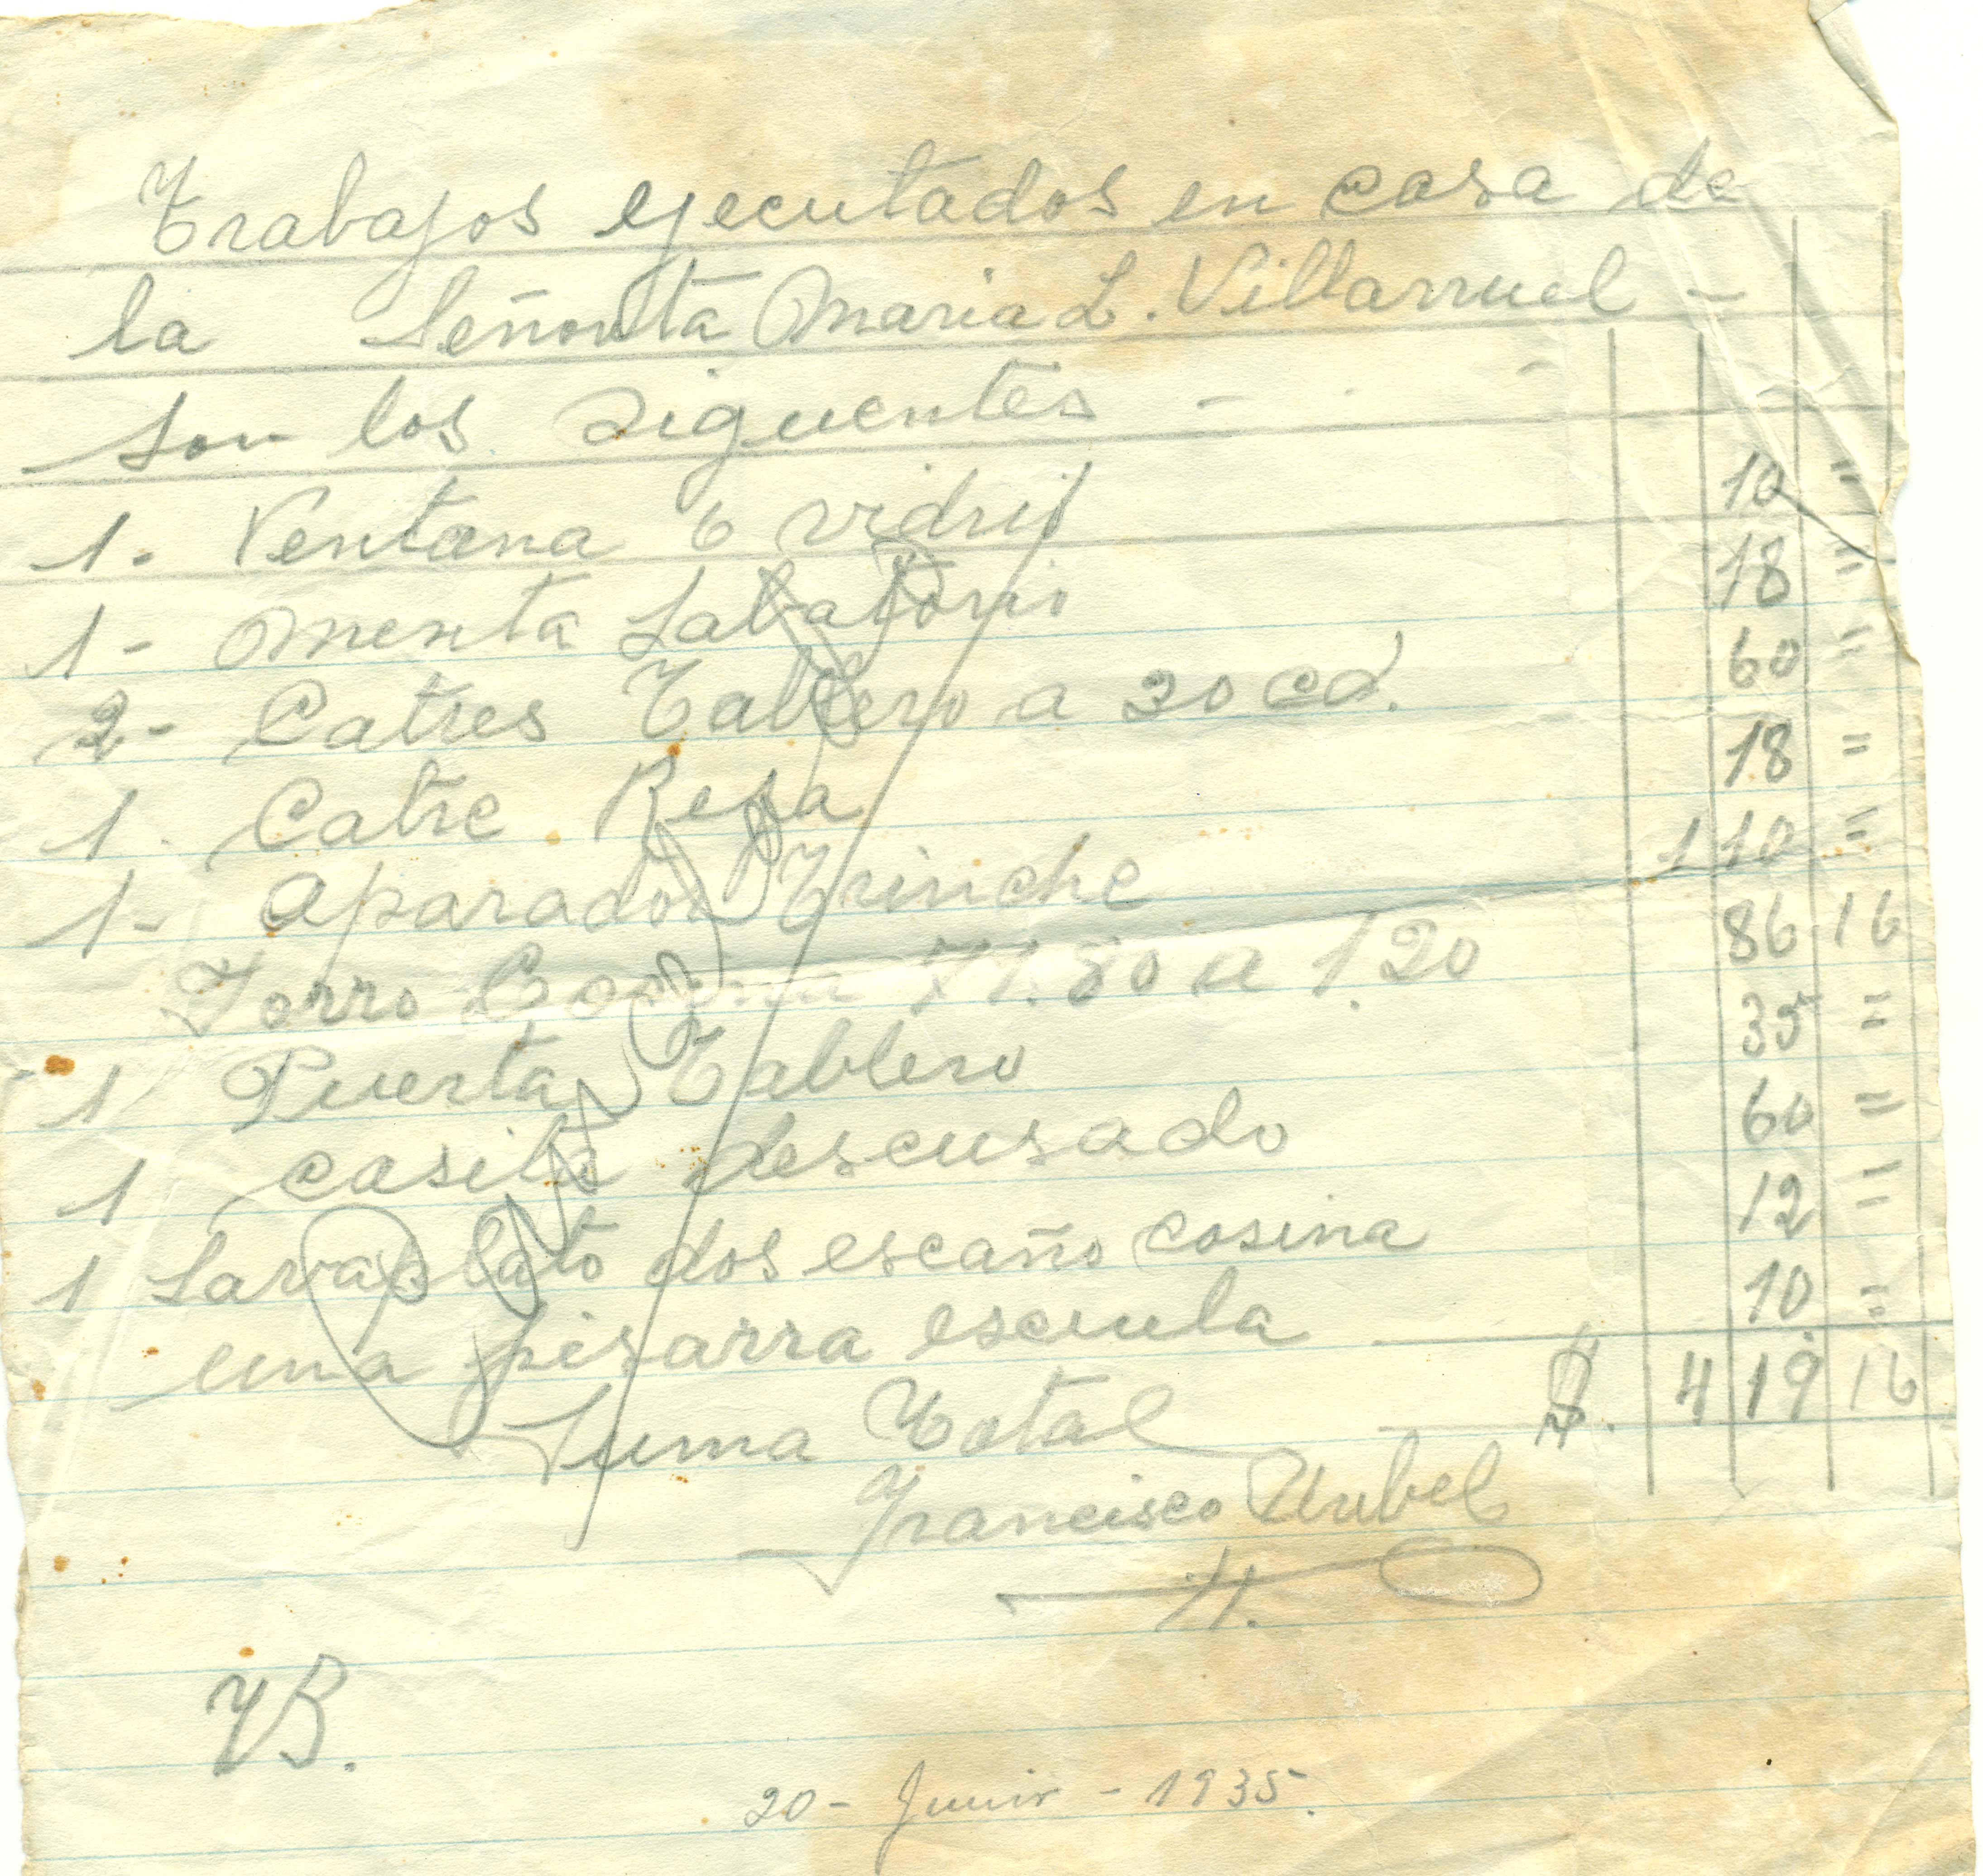 Trabajos ejecutados en casa de
la Señorita Maria L. Villarruel -
son los siguentes -
1. Ventana 6 vidrio 10 "
1- Menta Labatorio 18 "
2- Catres Tablero a 30 cd. 60 "
1. Catre Resa 18 "
1- aparador Trinche 110 "
Forro 71.80 a 1.20 86 16
1 Puerta Tablero 35 "
1 casita descusado 60 "
1 Lavaplato dos escaño cosina 12 "
una pisarra escuela 10 "
Suma Total $. 419 16
Francisco
20 - Junio - 1935.